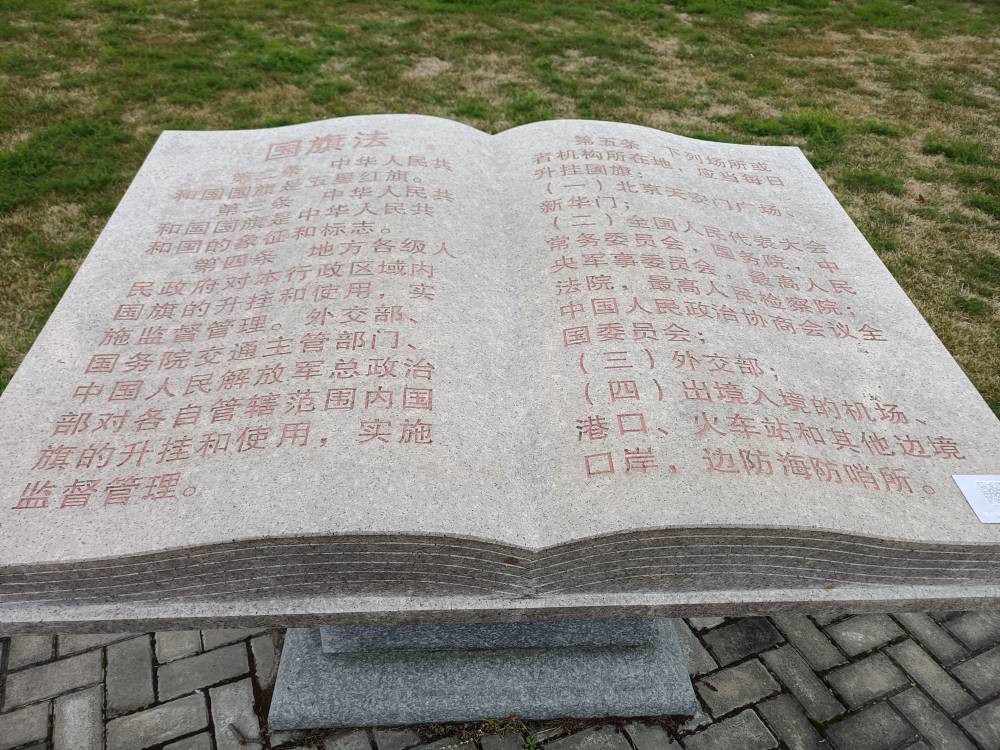 国旗法
第二条 中华人民共
和国国旗是五星红旗。
第三条 中华人民共
和国国旗是中华人民共
和国的象征和标志。
第四条 地方各级人
民政府对本行政区域内
国旗的升挂和使用，实
施监督管理。外交部、
国务院交通主管部门、
中国人民解放军总政治
部对各自管辖范围内国
旗的升挂和使用，实施
监督管理。
第五条 下列场所或
者机构所在地，应当每日
升挂国旗：
（一）北京天安门广场、
新华门；
（二）全国人民代表大会
常务委员会，国务院，中
央军事委员会，最高人民
法院，最高人民检察院；
中国人民政治协商会议全
国委员会；
（三）外交部；
（四）出境入境的机场、
港口、火车站和其他边境
口岸，边防海防哨所。